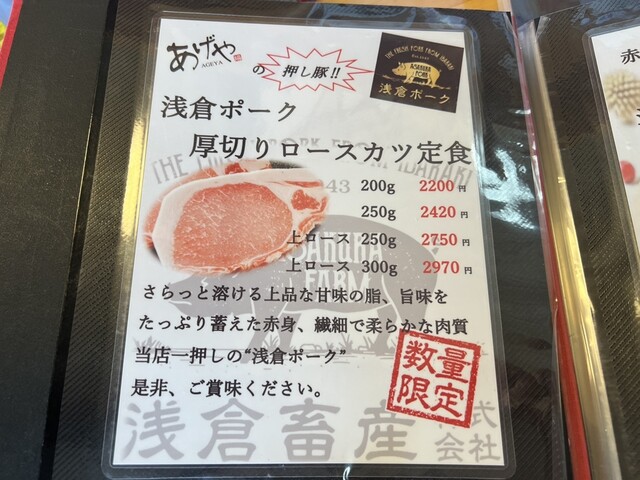 あげや
AGEYA
の 押し豚!!
THE FRESH PORK FROM IBARAKI
ASAKURA
PORK
浅倉ポーク
浅倉ポーク
厚切りロースカツ定食
200g 2200円
250g 2420円
上ロース 250g 2750円
上ロース 300g 2970円
さらっと溶ける上品な甘味の脂、旨味を
たっぷり蓄えた赤身、繊細で柔らかな肉質
当店一押しの“浅倉ポーク”
是非、ご賞味ください。
数量
限定
ASAKURA
FARM
浅倉畜産 株式
会社
赤